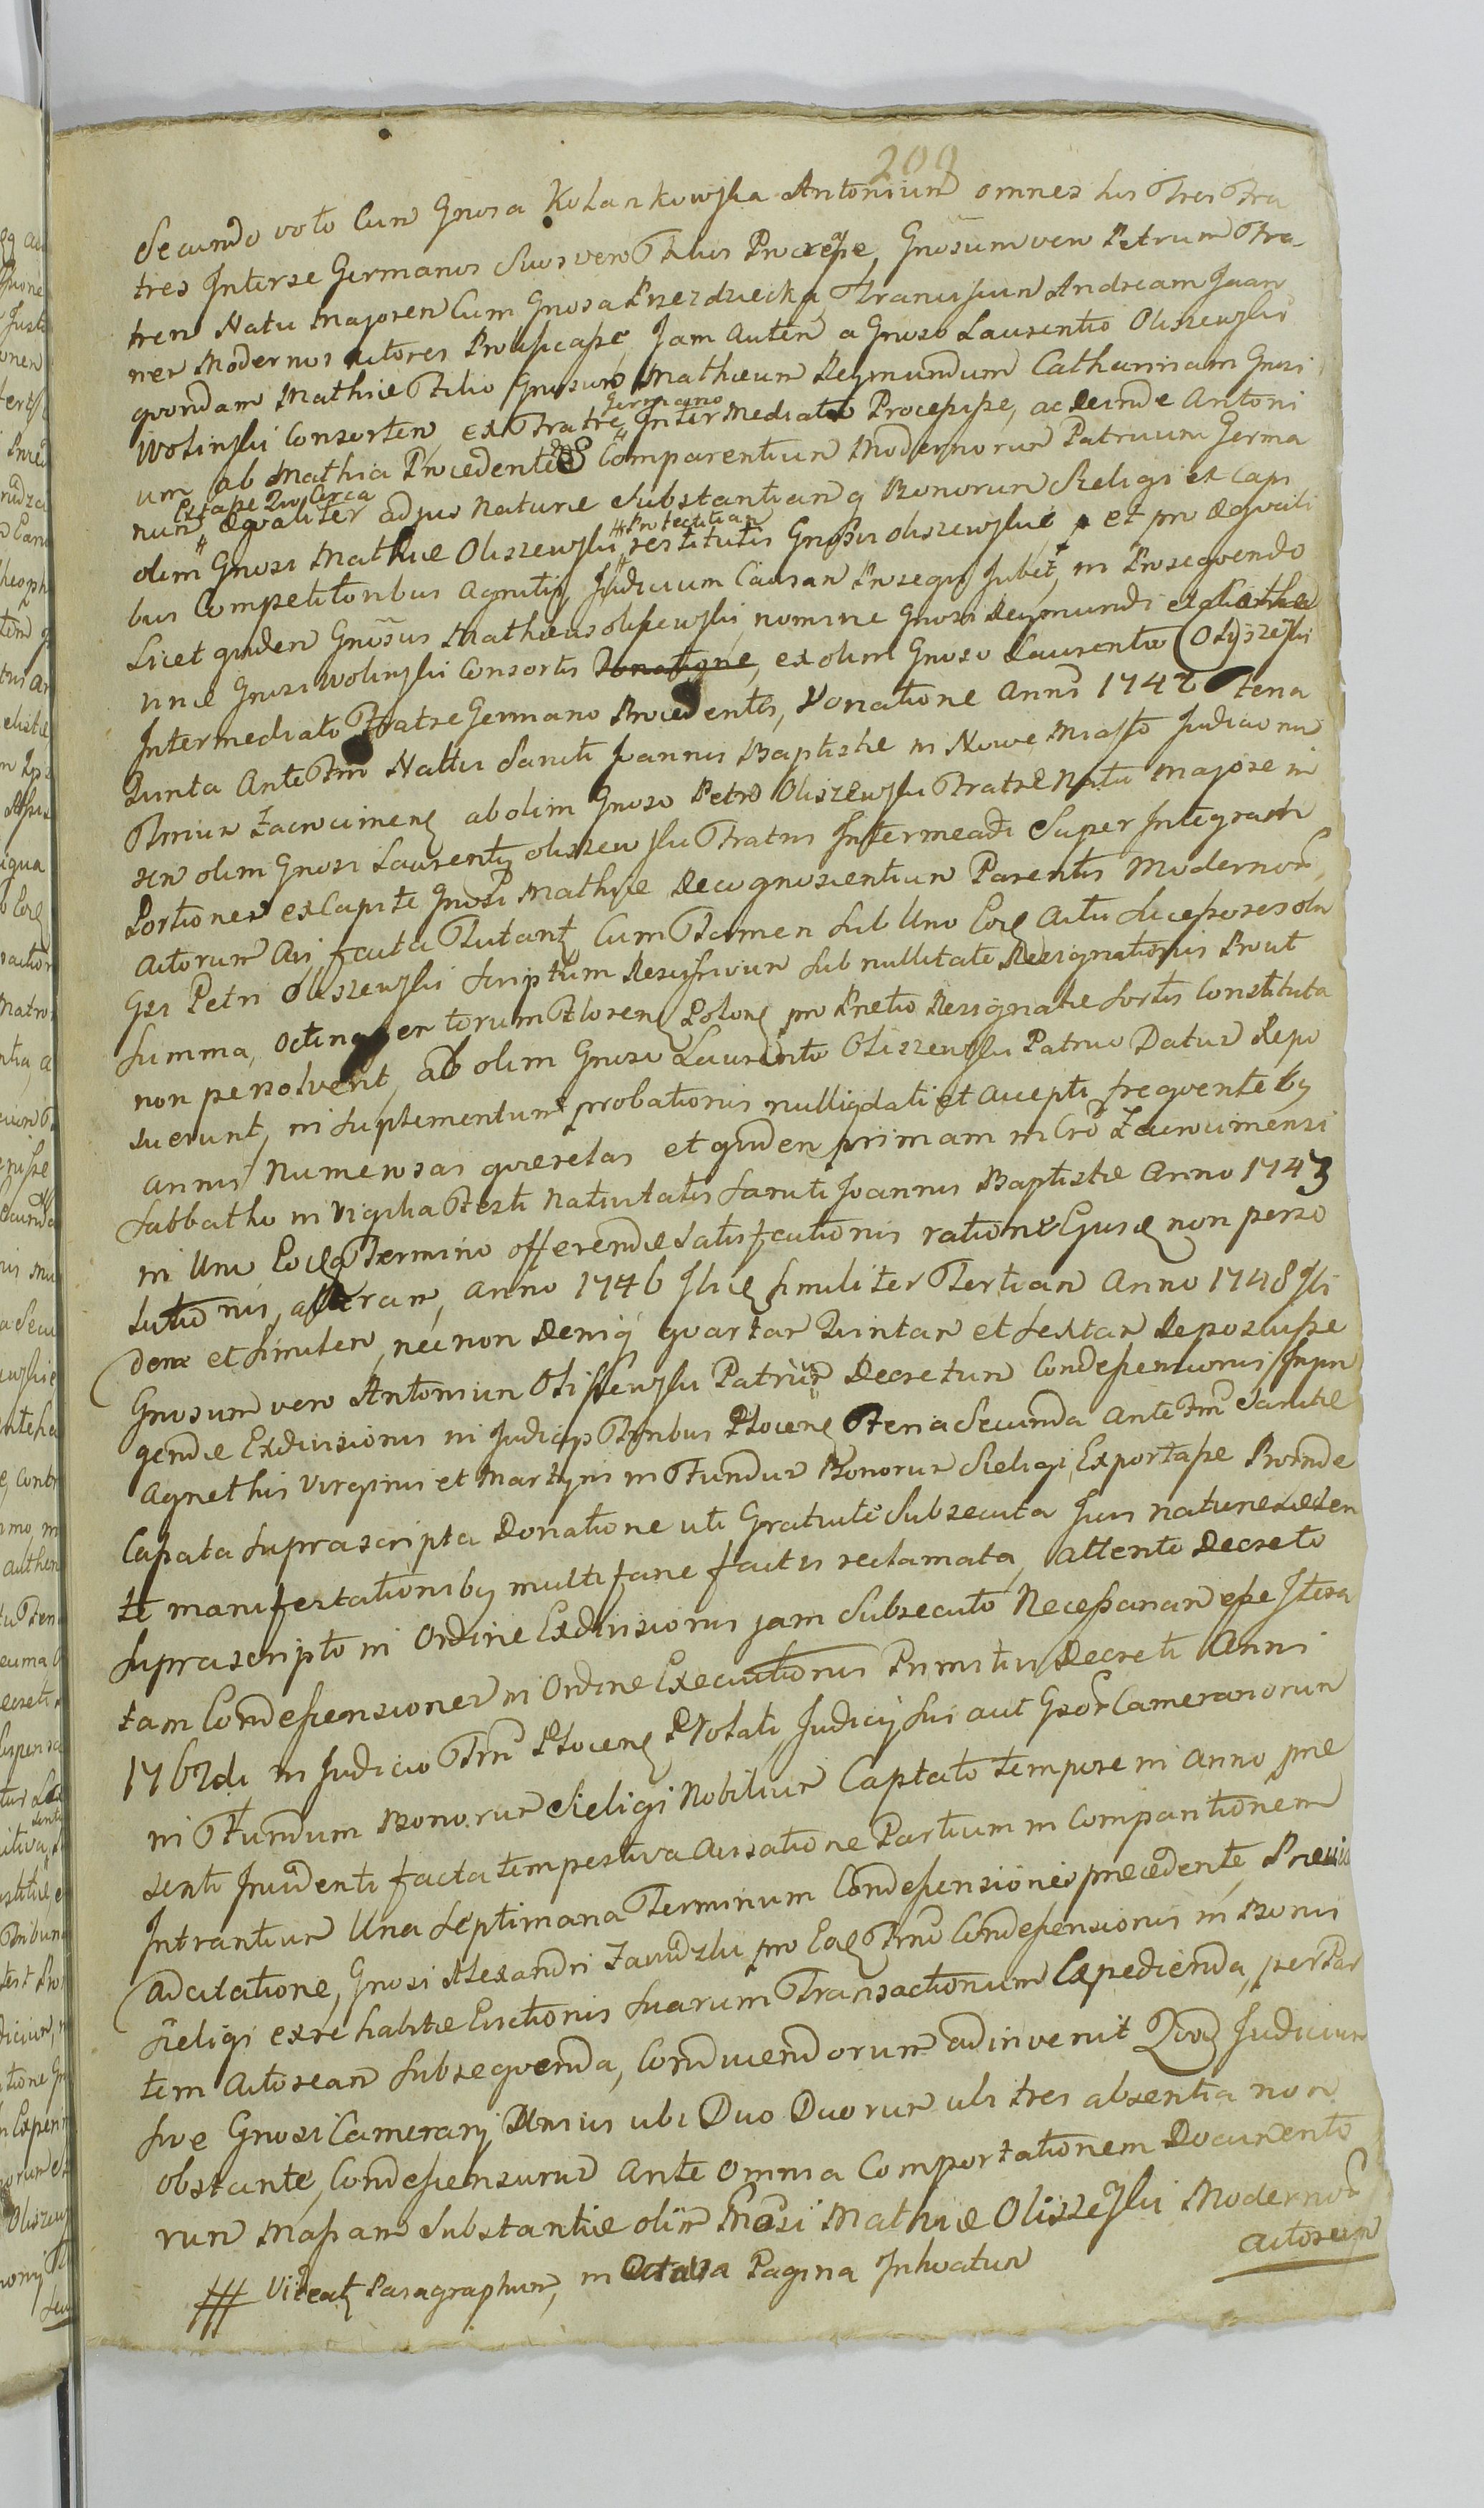 209
Secundo voto Cum Gnosa Kolankowska Antonium omnes hos Tres Fra
tres Interse Germanos Suos vero Filios Procreasse, Gnosum vero Petrum Fra-
trem Natu Majorem Cum Gnosa Przezdziecka Franciscum Andream Joan
nem Modernos Actores Prolificasse, Jam Autem a Gnoso Laurentio Oliszewski
quondam Mathiæ Filio Gnosum Mathæum Reymundum Catharinam Gnosi
Wolinski Consortem, ex Fratre Germano InterMediato Processisse, ac deinde Antoni
um ab Mathia Procedente Comparentium Modernorum Patruum Germa
num Extasse Quo Circa Æqualiter adjus Naturæ Substantiam q Bonorum Sieligi ex Capi
olim Gnosi Mathiæ Oliszewski # Protectitiam restitutis Gnosis Oliszewskie et pro Æquali
bus Competitoribus Agnitis, Judicium Causam Prosequi Jubet, in Prosequendo
Licet quidem Gnosus Mathæus Olszewski, nomine Gnosi Reymundi et Catha
rinæ Gnosi Wolinski Consortis Donatione, ex olim Gnoso Laurentio Olyszeski
Intermediato Fratre Germano Procedentes, Donatione Anni 1742 Feria
Quinta Ante Fm Nattis Sancti Joannis Baptistæ in Nowe Miasto Judicio
Trmium Zacrocimen ab olim Gnoso Petro Oliszewski Fratre Natu Majore in
rem olim Gnosi Laurenty Oliszewski Fratris Intermedi Super Integram
Portionem ex Capite Gnosi Mathiæ Recognoscentium Parentis Modernor
Actorum Avi, facta Tutant, Cum Tamen Sub Uno Eoq Actu Successores olim
Gsi Petri Oliszewski Scriptum Rescissivum Sub nullitate Resignationis Prout
Summa, Octingentorum Floren Polon pro Pretio Resignatæ Sortis Constituta
non persolverit, ab olim Gnoso Laurentio Oliszewski Patruo Datum Repo
suerunt, in Suplementum probationis nulliq dati et Accepti frequentiby
annis Numerosas quærelas et quidem primam in Cro Zacrocimensi
Sabbatho in Vigilia Festi Nativitatis Sancti Joannis Baptistæ Anno 1743
in Uno Eodq Termino offerendæ Satisfactionis ratione Ejusq non perso
lutionis, alteram, Anno 1746 Ibiq similiter Tertiam Anno 1748 Ibi
dem et Similem, nec non Deniq quartam Quintam et Sextam Reposuisse
Gnosum vero Antonium Olissewski Patruum Decretum Condescensionis Inpin
gendæ Exdivisionis in Judicys Trribus Plocen Feria Secunda Ante Fm Sanctæ
Agnethis Virginis et Martyris in Fundum Bonorum Sieligi, Exportasse Proinde
Cassata Suprascripta Donatione uti Gratuite Subsecuta Juri naturæ Læden
te manifestationiby multifarie factis reclamata, attento Decreto
Suprascripto in Ordine Exdivisionis jam Subsecuto Necessariam esse Itera
tam Condescensionem in Ordine Executionis Primitivi Decreti Anni
1762di in Judicio Trri Plocen Ptolati, Judicij Sui aut Gsor Camerariorum
in Fundum Bonorum Sieligi Nobilium Captato tempore in Anno præ
senti Inuidenti facta tempestiva Avisatione Partium in Comparitionem
Intrantium Una Septimana Terminum Condescensionis præcedente, Prævia
Adcitatione, Gnosi Alexandri Zawidzki pro Eoq Trno Condescensionis in Bonis
Sieligi ex re habitæ Evictionis Suarum Transactionum Expedienda, per Par
tem Actoream Subsequenda, Conducendorum adinvenit Quod Judicium
Sive Gnosi Camerary Unius ubi Duo Duorum ubi tres absentia non
obstante, Condescensurus Ante omnia Comportationem Documento
rum Massam Substantiæ olim Gnosi Mathiæ Oliszeski Modernor
Actorum
# Videatq Paragraphum, in Octava Pagina Inhoatum